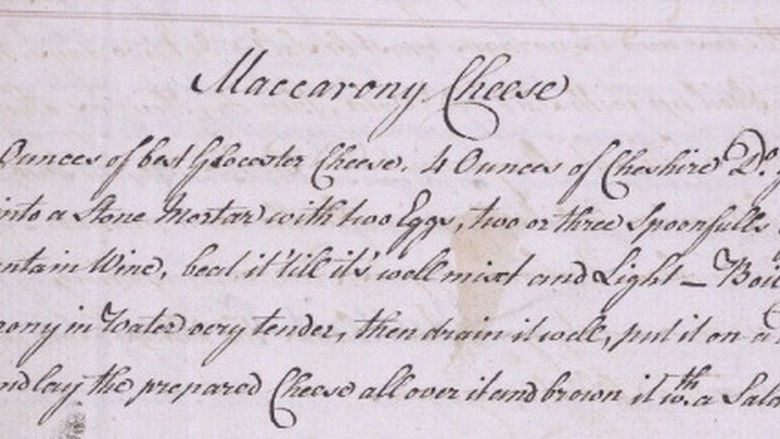 Maccarony Cheese
Ounces of best Glocester Cheese. 4 Ounces of Cheshire Do.
into a Stone Mortar with two Eggs, two or three Spoonfulls
ntain Wine, beat it 'till it's well mixt and Light – Boy
rony in Water very tender, then drain it well, put it on a
nd lay the prepared Cheese all over it and brown it wth. a Sala